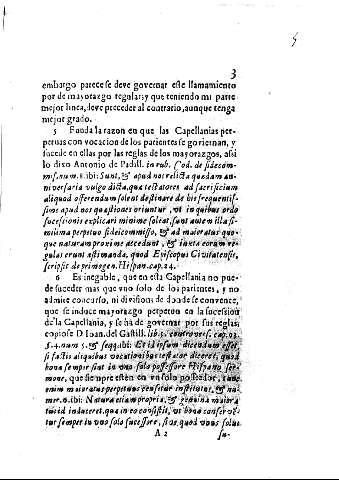 3
embargo parece se deve governar este llamamiento
por de mayorazgo regular: y que teniendo mi parte
mejor linea, deve preceder al contrario, aunque tenga
mejor grado.
5 Funda la razon en que las Capellanias per-
petuas con vocacion de los parientes se goviernan, y
sucede en ellas por las reglas de los mayorazgos, assi
lo dixo Antonio de Padill. in rub. Cod. de fideicom-
mis. num. 8. ibi: Sunt, & apud nos relicta quædam an-
niversaria vulgo dicta, quæ testatores ad sacrificium
aliquod offerendum solent destinare de his frequentis-
sime apud nos quæstiones oriuntur, ut in quibus ordo
sucessionis explicari minime soleat, sunt autem illa si-
millima perpetuo fideicommisso, & ad maioratus quo-
que naturam proxime accedunt, & iuxta eorum re-
gulas erunt æstimanda, quod Episcopus Civitatensis,
scripsit de primogen. Hispan. cap. 24.
6 Es inegable, que en esta Capellania no pue-
de suceder mas que uno solo de los parientes, y no
admite concurso, ni division: de donde se convence,
que se induce mayorazgo perpetuo en la sucession
de la Capellania, y se ha de governar por sus reglas,
copiose D. Ioan. del Castill. lib. 5. controvers. cap. 93.
§. 4. num. 5. & seqq. ibi: Et id ipsum dicendum esset
si factis aliquibus vocationibus testator diceret, quod
bona semper sint in uno solo possessore Hispano ser-
mone, que siempre estèn en un solo posseedor, tunc
enim maioratus perpetuus censetur institutus, & nu-
mer. 8. ibi: Natura etiam propria, & genuina maiora-
tus id induceret, qua in eo consistit, ut bona conserven-
tur semper in uno successore, sive quod unus solus
A 2 su-